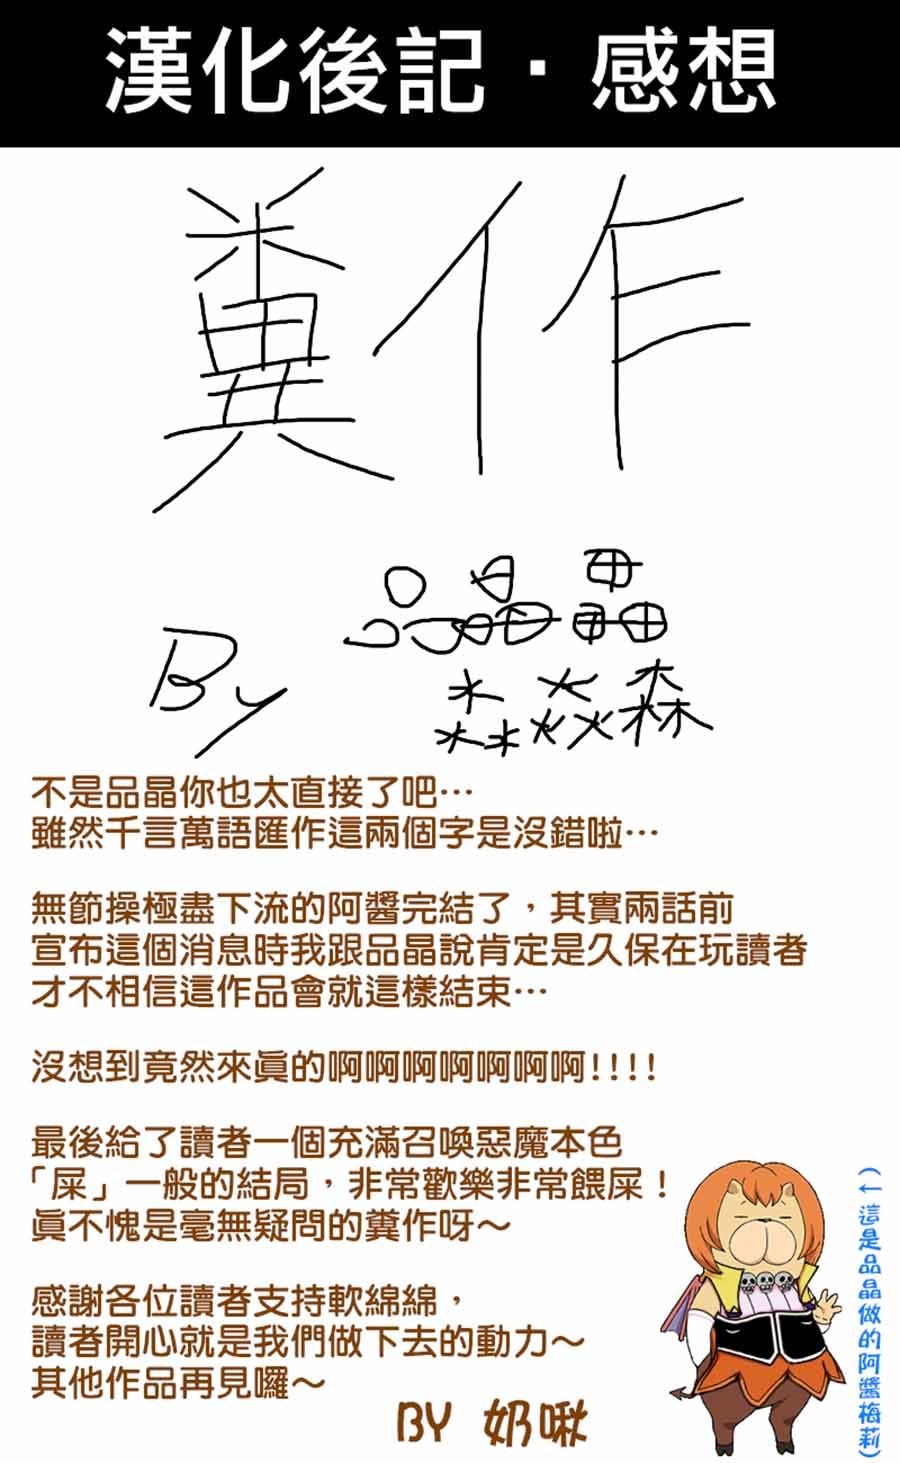 漢化後記·感想
糞作
By 品晶晶
淼焱森
不是品晶你也太直接了吧…
雖然千言萬語匯作這兩個字是沒錯啦…
無節操極盡下流的阿醬完結了，其實兩話前
宣布這個消息時我跟品晶說肯定是久保在玩讀者
才不相信這作品會就這樣結束…
沒想到竟然來眞的啊啊啊啊啊啊啊!!!!
最後給了讀者一個充滿召喚惡魔本色
「屎」一般的結局，非常歡樂非常餵屎！
眞不愧是毫無疑問的糞作呀～
感謝各位讀者支持軟綿綿，
讀者開心就是我們做下去的動力～
其他作品再見囉～
BY 奶啾
(←這是品晶做的阿醬梅莉)